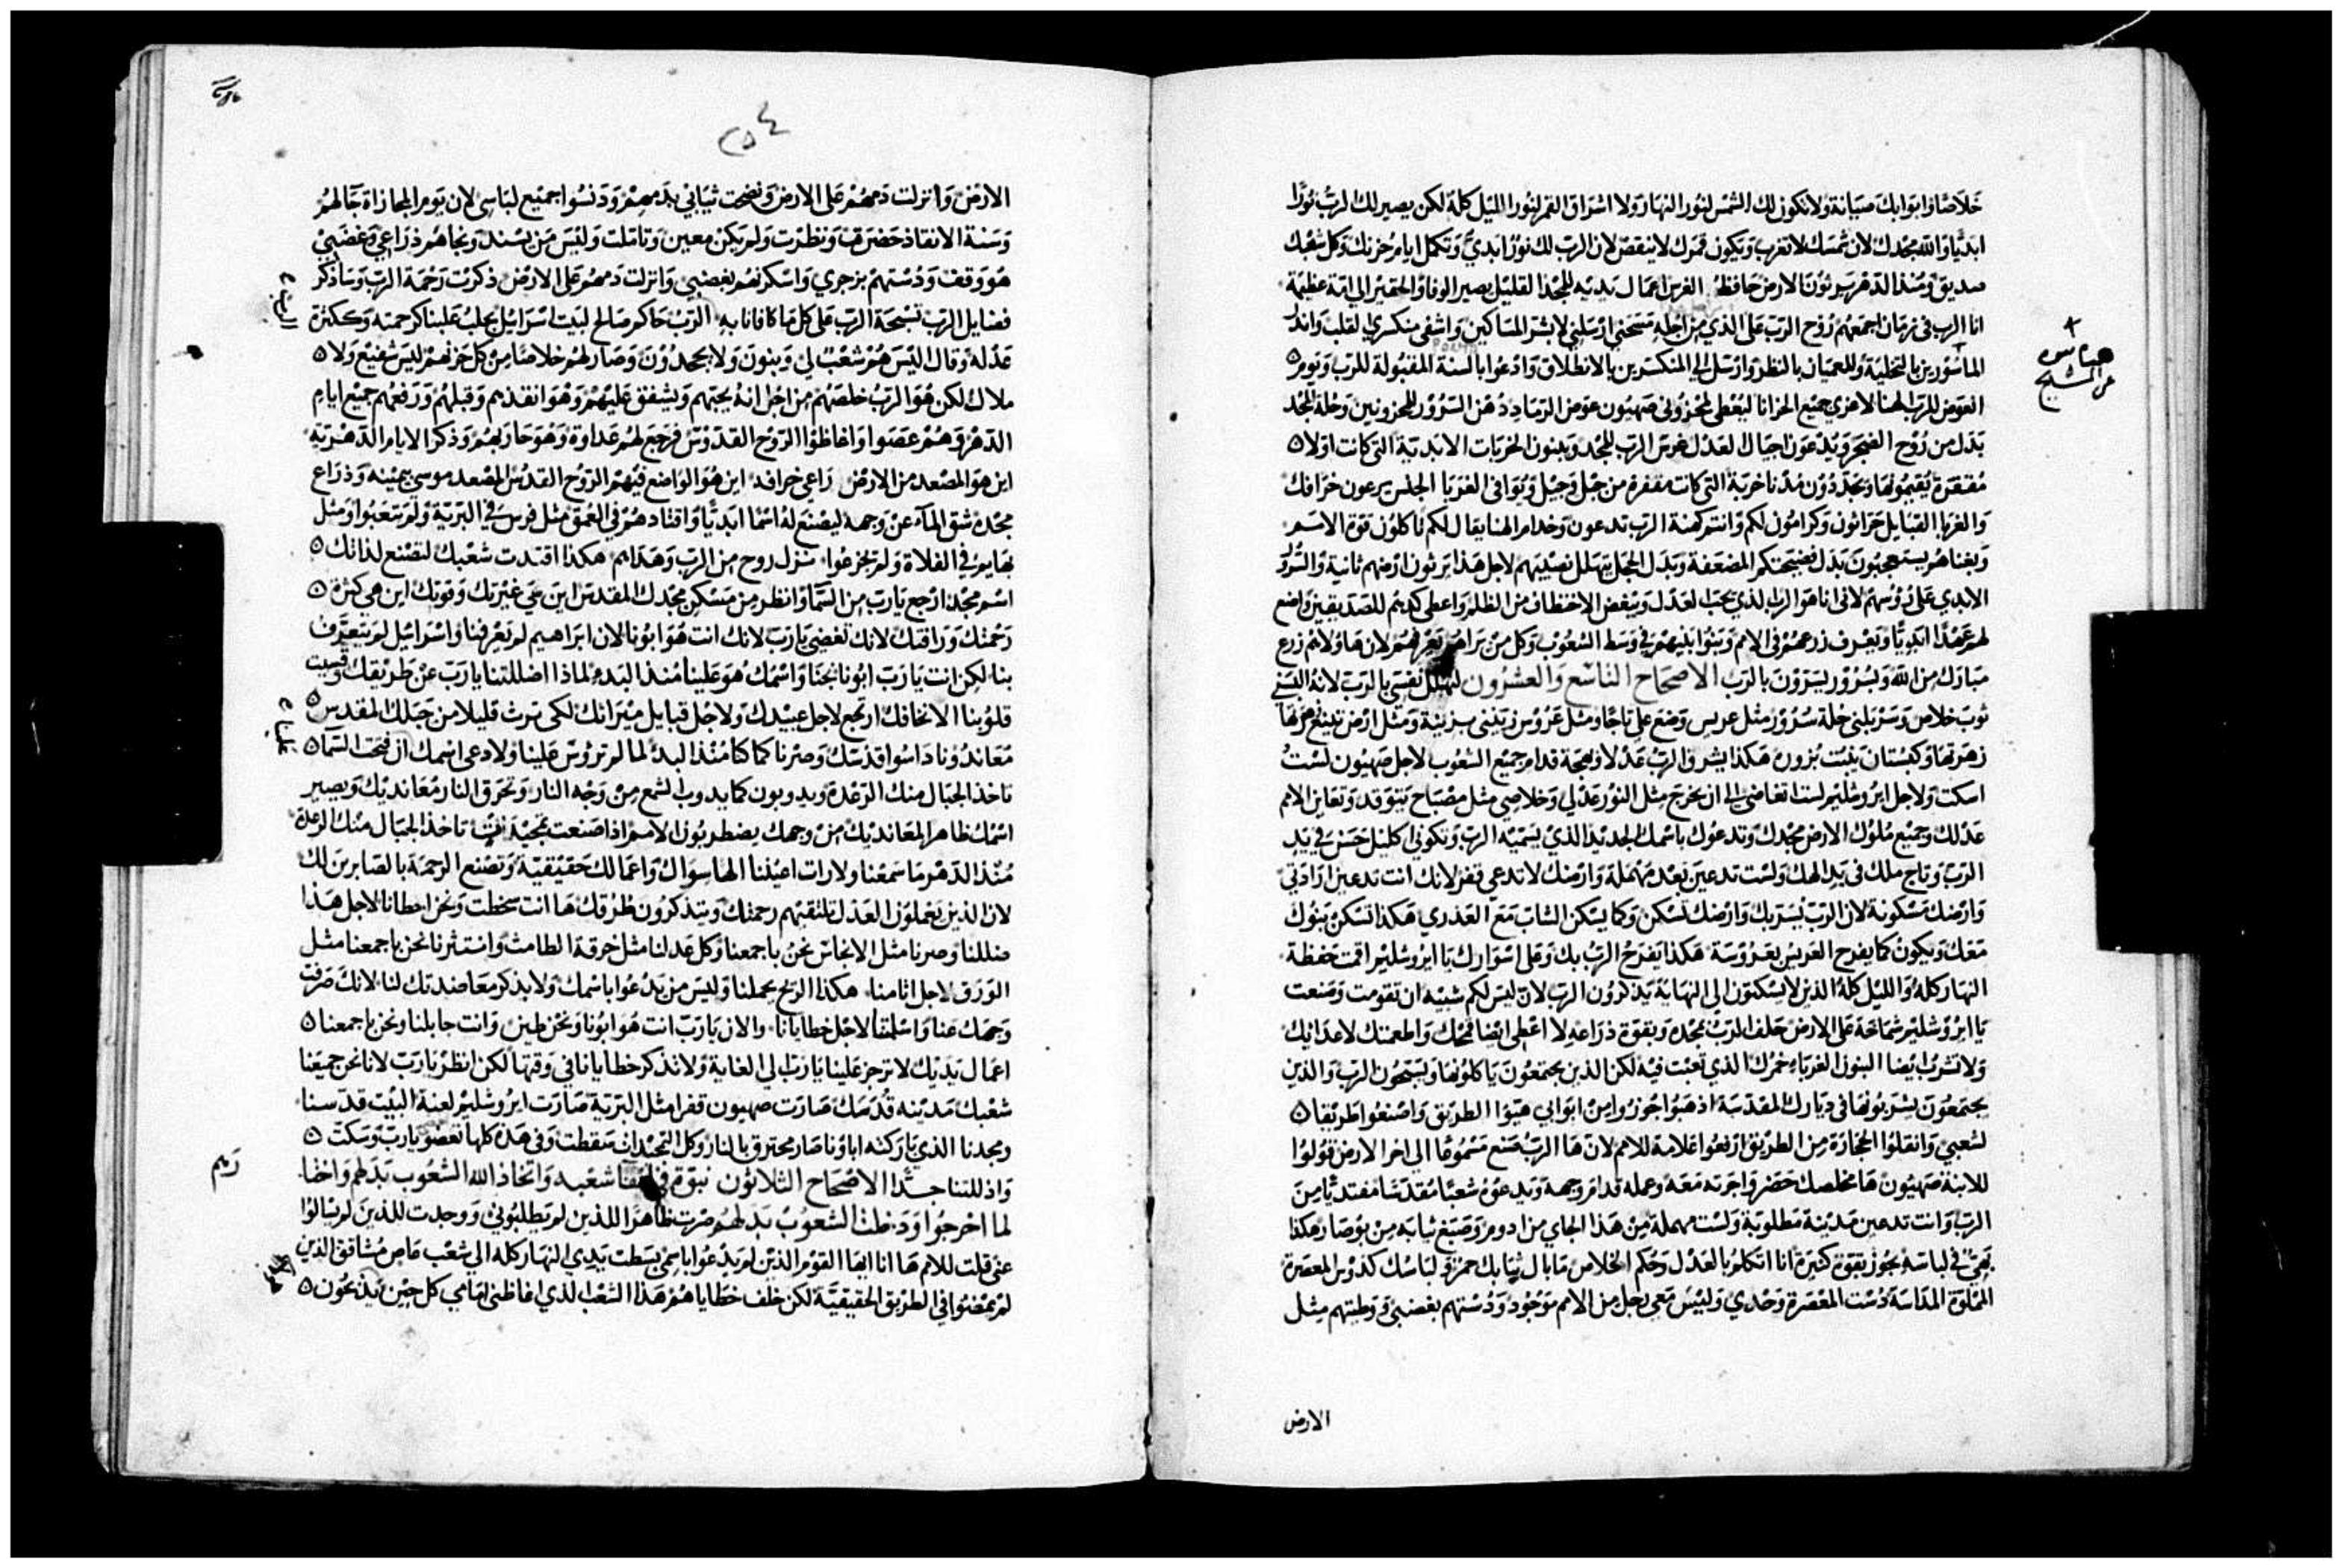 خلاصًا وابوابك صيانة ولا تكون لك الشمس لنور النهار ولا اشراق القمر لنور الليل كلهُ لكن يصير لك الرب نورًا
ابديًا والله مجدك لان شمسك لا تغرب ويكون قمرك لا ينقص لان الرب لك نور ابدي وتكمل ايام حزنك وكل شعبك
صديق ومنذ الدهر يرثون الارض حافظًا الغرس اعمال يديه للمجد القليل يصير الوفا والحقير الي امة عظيمة
انا الرب في زمان اجمعهم روح الرب علي الذي من اجله مسحني ارسلني لابشر المساكين واشفي منكسري القلب وانذر
الماسورين بالتخلية وللعميان بالنظر وارسل المنكسرين بالانطلاق وادعوا بالسنة المقبولة للرب ويوم
العوض للرب الهنا لاعزي جميع الحزانا ليعطي لمحزوني صهيون عوض الرماد دهن السرور للمحزونين وحلة المجد
بدل من روح الضجر ويدعون اجيال العدل غرس الرب للمجد ويبنون الخربات الابدية التي كانت اولا
مقفرة يقيمونها ويجددون مدنا خربة التي كانت مقفرة من جيل وجيل وياتوا في الغربا الجلس يرعون خرافك
والغربا القبايل حراثون وكرامون لكم وانتم كهنة الرب تدعون وخدام الهنا يقال لكم تاكلون قوة الامم
وبغناهم يستعجبون بدل فضيحتكم المضعفة وبدل الخجل يتهلل نصيبهم لاجل هذا يرثون ارضهم ثانية والسرور
الابدي علي رؤسهم لاني انا هو الرب الذي يحب العدل ويبغض الاختطاف من الظلم واعطي كدهم للصديقين واضع
لهم عهدًا ابديًا ويعرف زرعهم في الامم وبنوا بنيهم في وسط الشعوب وكل من يراهم يعرفهم لان هاولاهم زرع
مبارك من الله وبسرور يسرون بالرب الاصحاح التاسع والعشرون لتهلل نفسي بالرب لانه البسني
ثوب خلاص وسربلني حلة سرور مثل عريس وضع علي تاجًا ومثل عروس زينني بزينة ومثل ارض تينع زهرها
زهرتها وكبستان ينبت بزوره هكذا يشرق الرب عدلا وبهجة قدام جميع الشعوب لاجل صهيون لست
اسكت ولاجل ايروشليم لست اتغاضي الي ان يخرج مثل النور عدلي وخلاصي مثل مصباح يتوقد وتعاين الامم
عدلك وجميع ملوك الارض مجدك وتدعوك باسمك الجديد الذي يسميه الرب وتكوني اكليل حسن في يد
الرب وتاج ملك في يد الهك ولست تدعين بعد مهملة وارضك لا تدعي قفر لانك انت تدعين ارادتي
وارضك مسكونة لان الرب يسر بك وارضك تسكن وكما يسكن الشاب مع العذري هكذا تسكن بنوك
معك ويكون كما يفرح العريس بعروسة هكذا يفرح الرب بك وعلي اسوارك يا ايروشليم اقمت حفظة
النهار كله والليل كله الذين لا يسكتون الي النهاية يذكرون الرب لان ليس لكم شبيه ان تقومت وصنعت
يا ايروشليم شماخة علي الارض حلف الرب بمجده وبقوة ذراعه لا اعطي ايضا قمحك واطعمتك لاعدائك
ولا تشرب ايضا البنون الغربا خمرك الذي تعبت فيه لكن الذين يجتمعون ياكلونها ويسبحون الرب والذين
يجتمعون يشربونها في ديارك المقدسة اذهبوا جوزوا من ابوابي هيوا الطريق واصنعوا طريقا
لشعبي وانقلوا الحجارة من الطريق ارفعوا علامة للامم لان ها الرب صنع مسموعًا الي اخر الارض قولوا
للابنة صهيون ها مخلصك حضر واجرته معه وعمله قدام وجهه ويدعوه شعبًا مقدسًا مفتديًا من
الرب وانت تدعين مدينة مطلوبة ولست مهملة من هذا الجاي من ادوم وصبغ ثيابه من بوصار هكذا
بهي في لباسه يجوز بقوة كثيرة انا اتكلم بالعدل وحكم الخلاص ما بال ثيابك حمر ولباسك كدوس المعصرة
الممتلوة المداسة دست المعصرة وحدي وليس معي رجل من الامم موجود ودستهم بغضبي ووطيتهم مثل
الارض
الارض وانزلت دمهم علي الارض ونضحت ثيابي بدمهم ودنسوا جميع لباسي لان يوم المجازاة جا لهم
وسنة الانقاذ حضرت ونظرت ولم يكن معين وتاملت وليس من يسند ونجاهم ذراعي وغضبي
هو وقف ودستهم بزجري واسكرتهم بغضبي وانزلت دمهم علي الارض ذكرت رحمة الرب وساذكر
فضايل الرب تسبحة الرب علي كل ما كافانا به الرب حاكم صالح لبيت اسرائيل يجلب علينا كرحمته وككثرة
عدله وقال اليس هم شعب لي وبنون ولا يجحدون وصار لهم خلاصا من كل حزنهم ليس شفيع ولا
ملاك لكن هو الرب خلصهم من اجل انه يحبهم ويشفق عليهم وهو انقذهم وقبلهم ورفعهم جميع ايام
الدهر وهم عصوا واغاظوا الروح القدوس فرجع لهم عداوة وهو حاربهم وذكر الايام الدهرية
اين هو المصعد من الارض راعي خرافه اين هو الواضع فيهم الروح القدس المصعد موسي بيمينه وذراع
مجده شق الماء عن وجهه ليصنع له اسمًا ابديًا واقتادهم في العمق مثل فرس في البرية ولم يتعبوا ومثل
بهايم في الفلاة ولم يجزعوا نزل روح من الرب وهداهم هكذا اقتدت شعبك لتصنع لذاتك
اسم مجد ارجع يا رب من السما وانظر من مسكن مجدك المقدس اين هي غيرتك وقوتك اين هي كثرة
رحمتك ورافتك لانك تغضي يا رب لانك انت هو ابونا لان ابراهيم لم يعرفنا واسرائيل لم يتعرف
بنا لكن انت يا رب ابونا نجنا واسمك هو علينا منذ البدء لماذا اضللتنا يا رب عن طريقك وقسيت
قلوبنا الا نخافك ارجع لاجل عبيدك ولاجل قبايل ميراثك لكي نرث قليلا من جبلك المقدس
معاندونا داسوا قدسك وصرنا كما كنا منذ البدء لما لم تروس علينا ولا دعي اسمك ان فتحت السما
تاخذ الجبال منك الرعدة ويذوبون كما يذوب الشمع من وجه النار وتحرق النار معانديك ويصير
اسمك ظاهر المعانديك من وجهك يضطربون الامم اذا صنعت تمجيدات تاخذ الجبال منك الرعدة
منذ الدهر ما سمعنا ولا رات اعيننا الها سواك واعمالك حقيقية وتصنع الرحمة بالصابرين لك
لان الذين يعملون العدل تلتقيهم رحمتك ويتذكرون طرقك ها انت سخطت ونحن اخطانا لاجل هذا
ضللنا وصرنا مثل الانجاس نحن باجمعنا وكل عدلنا مثل خرقة الطامث وانتثرنا نحن باجمعنا مثل
الورق لاجل اثامنا هكذا الريح يحملنا وليس من يدعوا باسمك ولا يذكر معاضدتك لنا لانك صرفت
وجهك عنا واسلمتنا لاجل خطايانا والان يا رب انت هو ابونا ونحن طين وانت جابلنا ونحن باجمعنا
اعمال يديك لا ترجز علينا يا رب الي الغاية ولا تذكر خطايانا في وقتها لكن انظر يا رب لاننا نحن جميعنا
شعبك مدينة قدسك صارت صهيون قفرا مثل البرية صارت ايروشليم لعنة البيت قدسنا
ومجدنا الذي باركته اباونا صار محترق بالنار وكل التمجيدات سقطت وفي هذه كلها تغضو يا رب وسكت
واذللتنا جدًا الاصحاح الثلاثون نبوة في شعبه واتخاذ الله الشعوب بدلهم واخفا
لما اخرجوا ودخلت الشعوب بدلهم صرت ظاهرا للذين لم يطلبوني ووجدت للذين لم يسالوا
عني قلت للامم ها انا ايها القوم الذين لم يدعوا باسمي بسطت يدي النهار كله الي شعب عاص مشاقق الذين
لم يمضوا في الطريق الحقيقية لكن خلف خطاياهم هذا الشعب الذي اغاظني امامي كل حين يذبحون